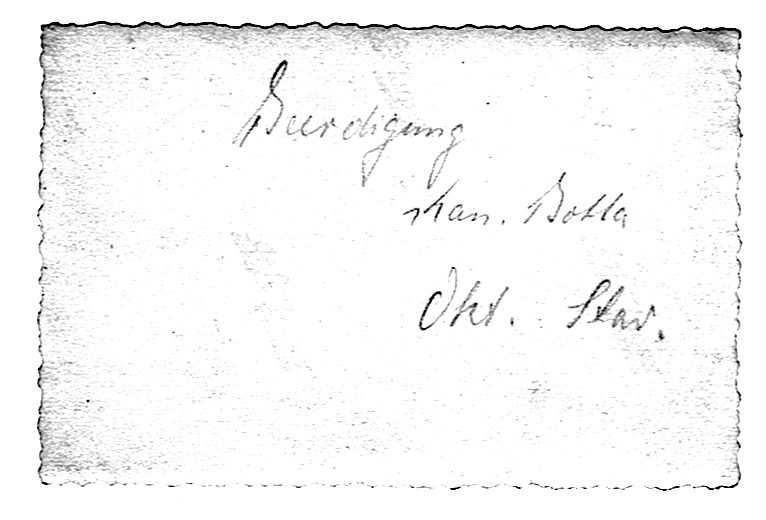 Beerdigung
Kan. Botta
Okt. Stav.